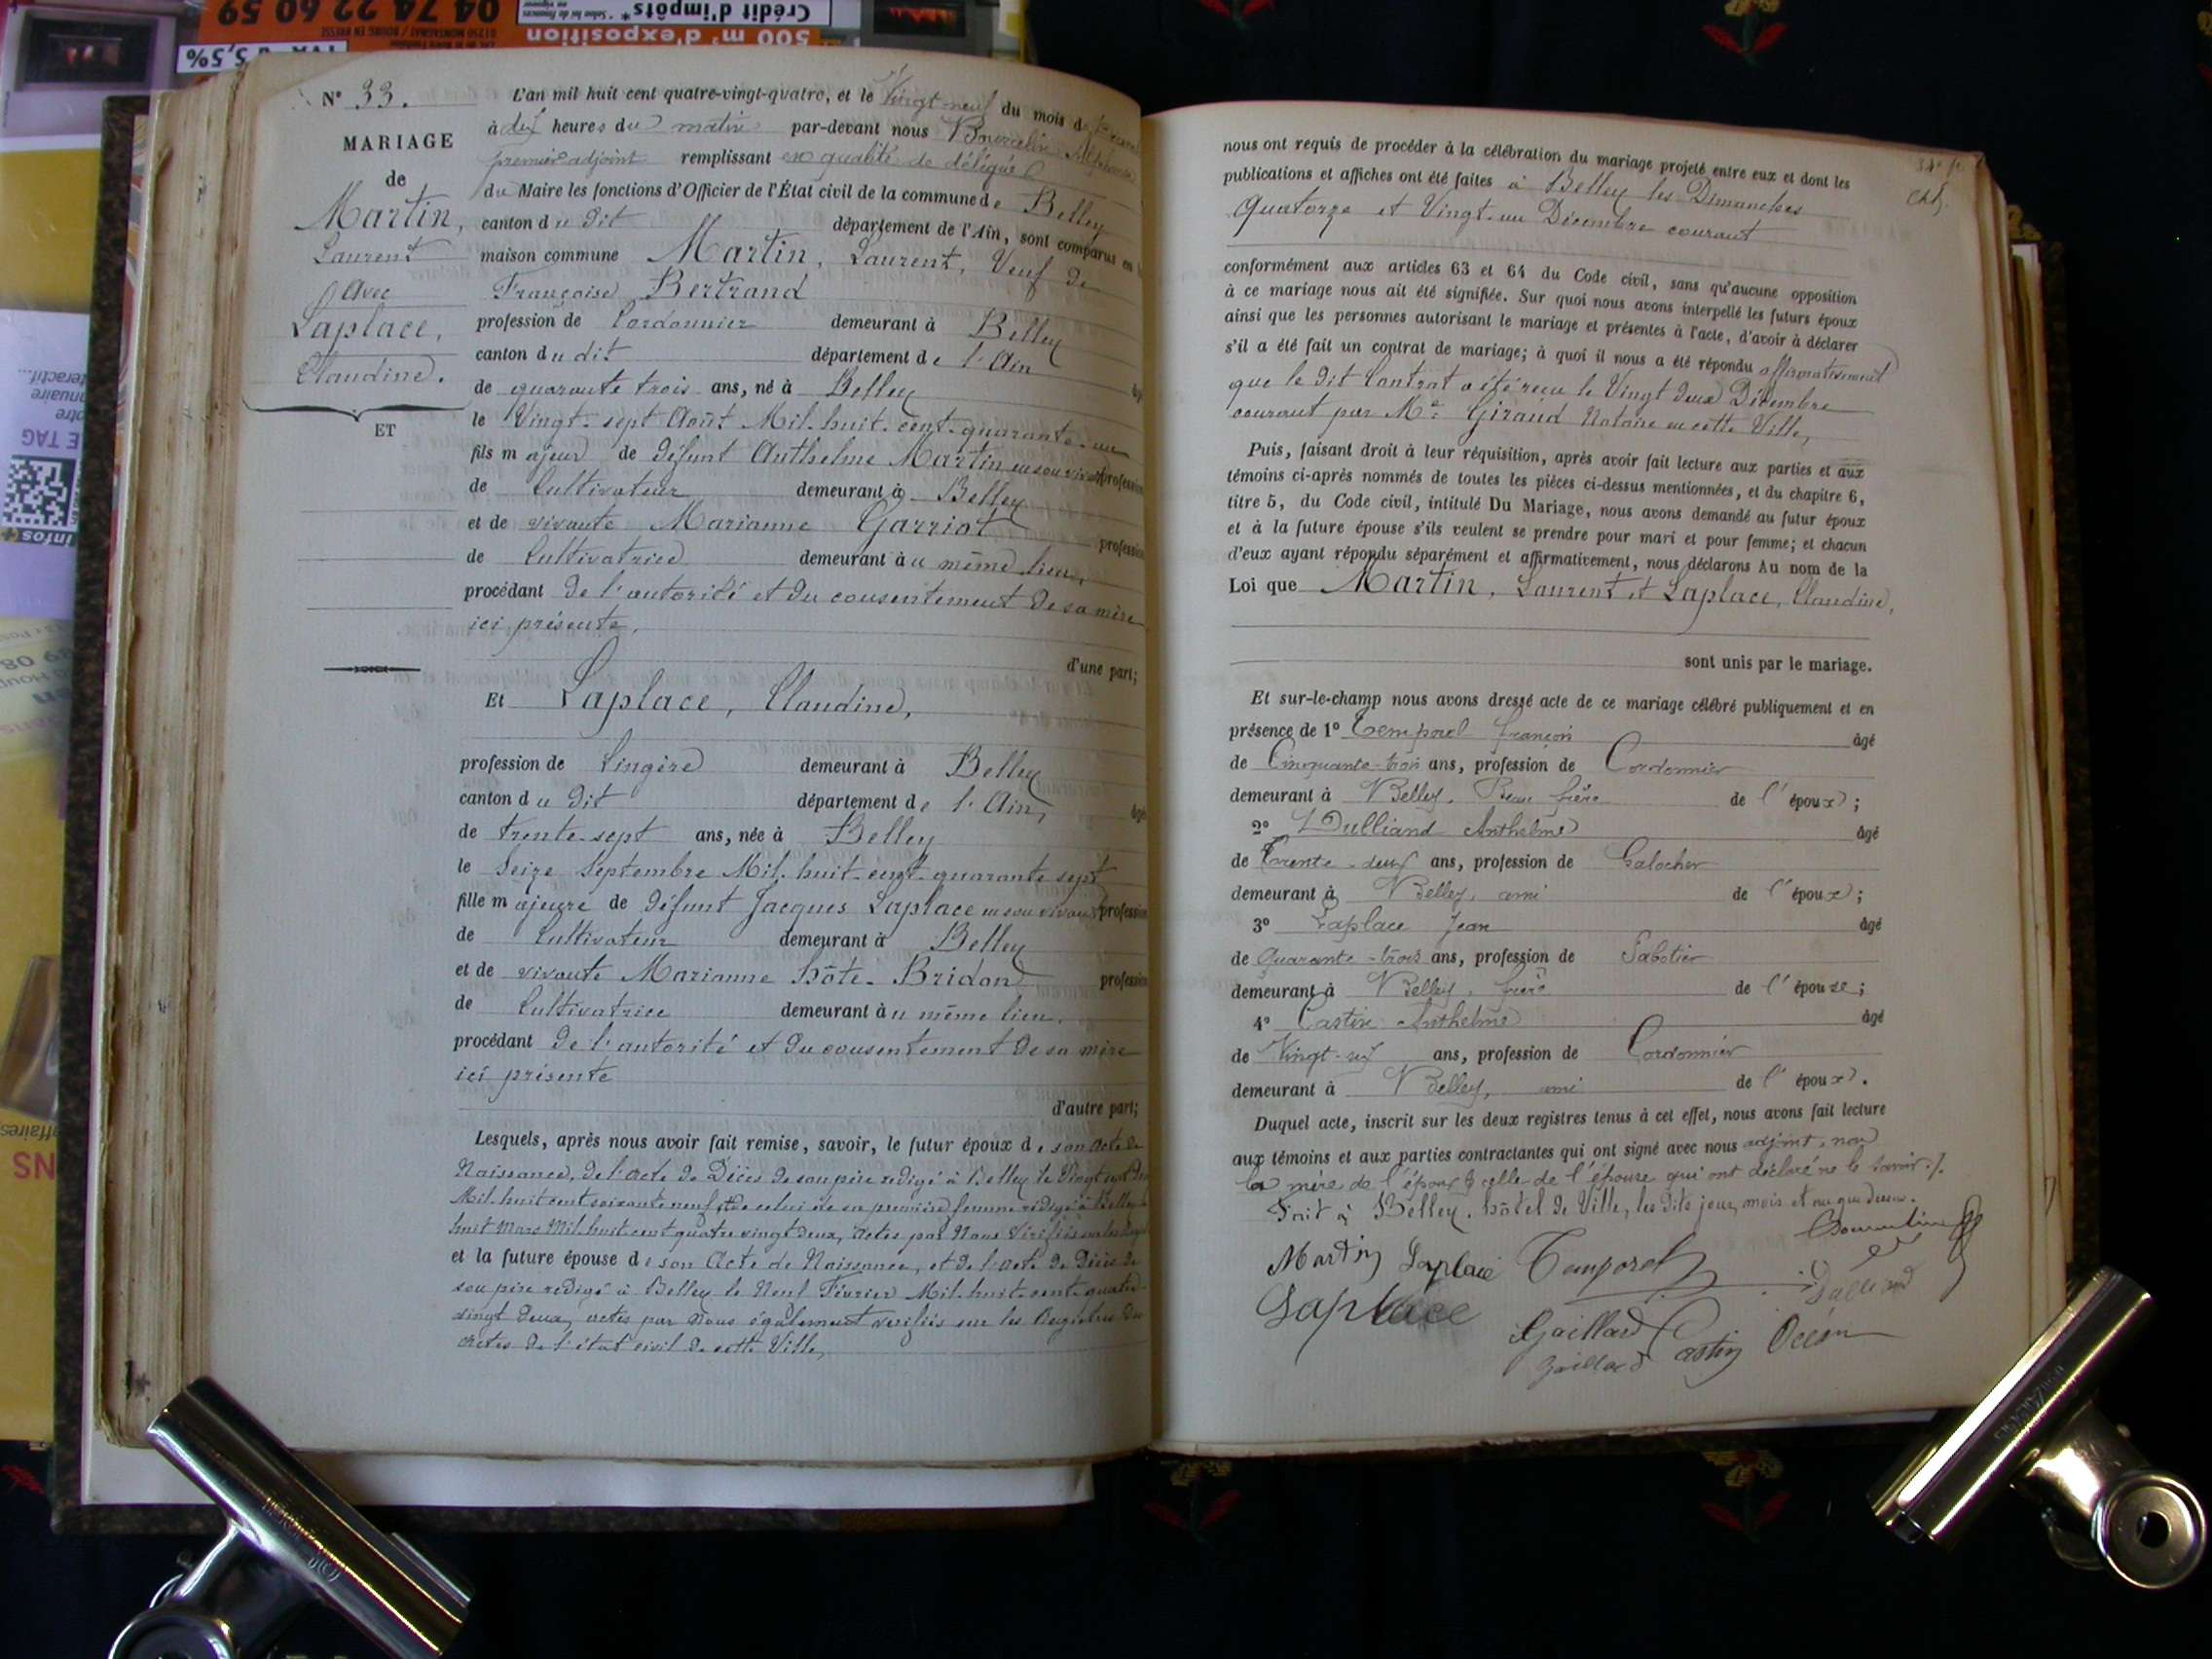 04 74 22 60 59
Crédit d'impôts*
500 m² d'exposition
01250 MONTAGNAT / BOURG EN BRESSE
5,5%
N° 33.
MARIAGE
de
Martin,
Laurent
Avec
Laplace,
Claudine.
ET
L'an mil huit cent quatre-vingt-quatre, et le Vingt-neuf du mois de
à dix heures du matin par-devant nous
premier adjoint remplissant en qualité de délégué
du Maire les fonctions d'Officier de l'État civil de la commune de Belley
canton du dit département de l'Ain, sont comparus en
maison commune Martin, Laurent, Veuf de
Françoise Bertrand
profession de Cordonnier demeurant à Belley
canton du dit département de l'Ain
de quarante trois ans, né à Belley
le Vingt-sept Août Mil-huit-cent-quarante-un
fils majeur de défunt Anthelme Martin en son vivant profession
de Cultivateur demeurant à Belley
et de vivante Marianne Garriot profession
de Cultivatrice demeurant au même lieu,
procédant de l'autorité et du consentement de sa mère
ici présente,
d'une part;
Et Laplace, Claudine,
profession de Lingère demeurant à Belley
canton du dit département de l'Ain,
de trente-sept ans, née à Belley
le Seize Septembre Mil-huit-cent-quarante sept
fille majeure de défunt Jacques Laplace en son vivant profession
de Cultivateur demeurant à Belley
et de vivante Marianne hôte-Bridon profession
de Cultivatrice demeurant au même lieu,
procédant de l'autorité et du consentement de sa mère
ici présente
d'autre part;
Lesquels, après nous avoir fait remise, savoir, le futur époux de son Acte de
Naissance, de l'acte de Décès de son père rédigé à Belley le Vingt
Mil-huit cent soixante neuf et de celui de sa première femme rédigé à Belley
huit Mars Mil-huit cent quatre vingt deux, actes par Nous vérifiés
et la future épouse de son Acte de Naissance, et de l'acte de Décès de
son père rédigé à Belley le Neuf Février Mil-huit-cent-quatre-
vingt deux, actes par nous également vérifiés sur les Registres des
actes de l'état civil de cette Ville,
nous ont requis de procéder à la célébration du mariage projeté entre eux et dont les
publications et affiches ont été faites à Belley les Dimanches
Quatorze et Vingt-un Décembre courant
conformément aux articles 63 et 64 du Code civil, sans qu'aucune opposition
à ce mariage nous ait été signifiée. Sur quoi nous avons interpellé les futurs époux
ainsi que les personnes autorisant le mariage et présentes à l'acte, d'avoir à déclarer
s'il a été fait un contrat de mariage; à quoi il nous a été répondu affirmativement
que le dit Contrat a été reçu le Vingt deux Décembre
courant par Me Girand Notaire en cette Ville,
Puis, faisant droit à leur réquisition, après avoir fait lecture aux parties et aux
témoins ci-après nommés de toutes les pièces ci-dessus mentionnées, et du chapitre 6,
titre 5, du Code civil, intitulé Du Mariage, nous avons demandé au futur époux
et à la future épouse s'ils veulent se prendre pour mari et pour femme; et chacun
d'eux ayant répondu séparément et affirmativement, nous déclarons Au nom de la
Loi que Martin, Laurent et Laplace, Claudine,
sont unis par le mariage.
Et sur-le-champ nous avons dressé acte de ce mariage célébré publiquement et en
présence de 1° Temporel françois âgé
de Cinquante-trois ans, profession de Cordonnier
demeurant à Belley, Beau frère de l'époux;
2° Dulliand Anthelme âgé
de Trente-deux ans, profession de Galocher
demeurant à Belley, ami de l'époux;
3° Laplace Jean âgé
de Quarante-trois ans, profession de Sabotier
demeurant à Belley, frère de l'épouse;
4° Castin Anthelme âgé
de Vingt-six ans, profession de Cordonnier
demeurant à Belley, ami de l'époux.
Duquel acte, inscrit sur les deux registres tenus à cet effet, nous avons fait lecture
aux témoins et aux parties contractantes qui ont signé avec nous adjoint, non
la mère de l'époux & celle de l'épouse qui ont déclaré ne le savoir./.
Fait à Belley, hôtel de Ville, les dits jour, mois et an que dessus.
Martin Laplace Temporel
Laplace
Gaillard Castin
Gaillard